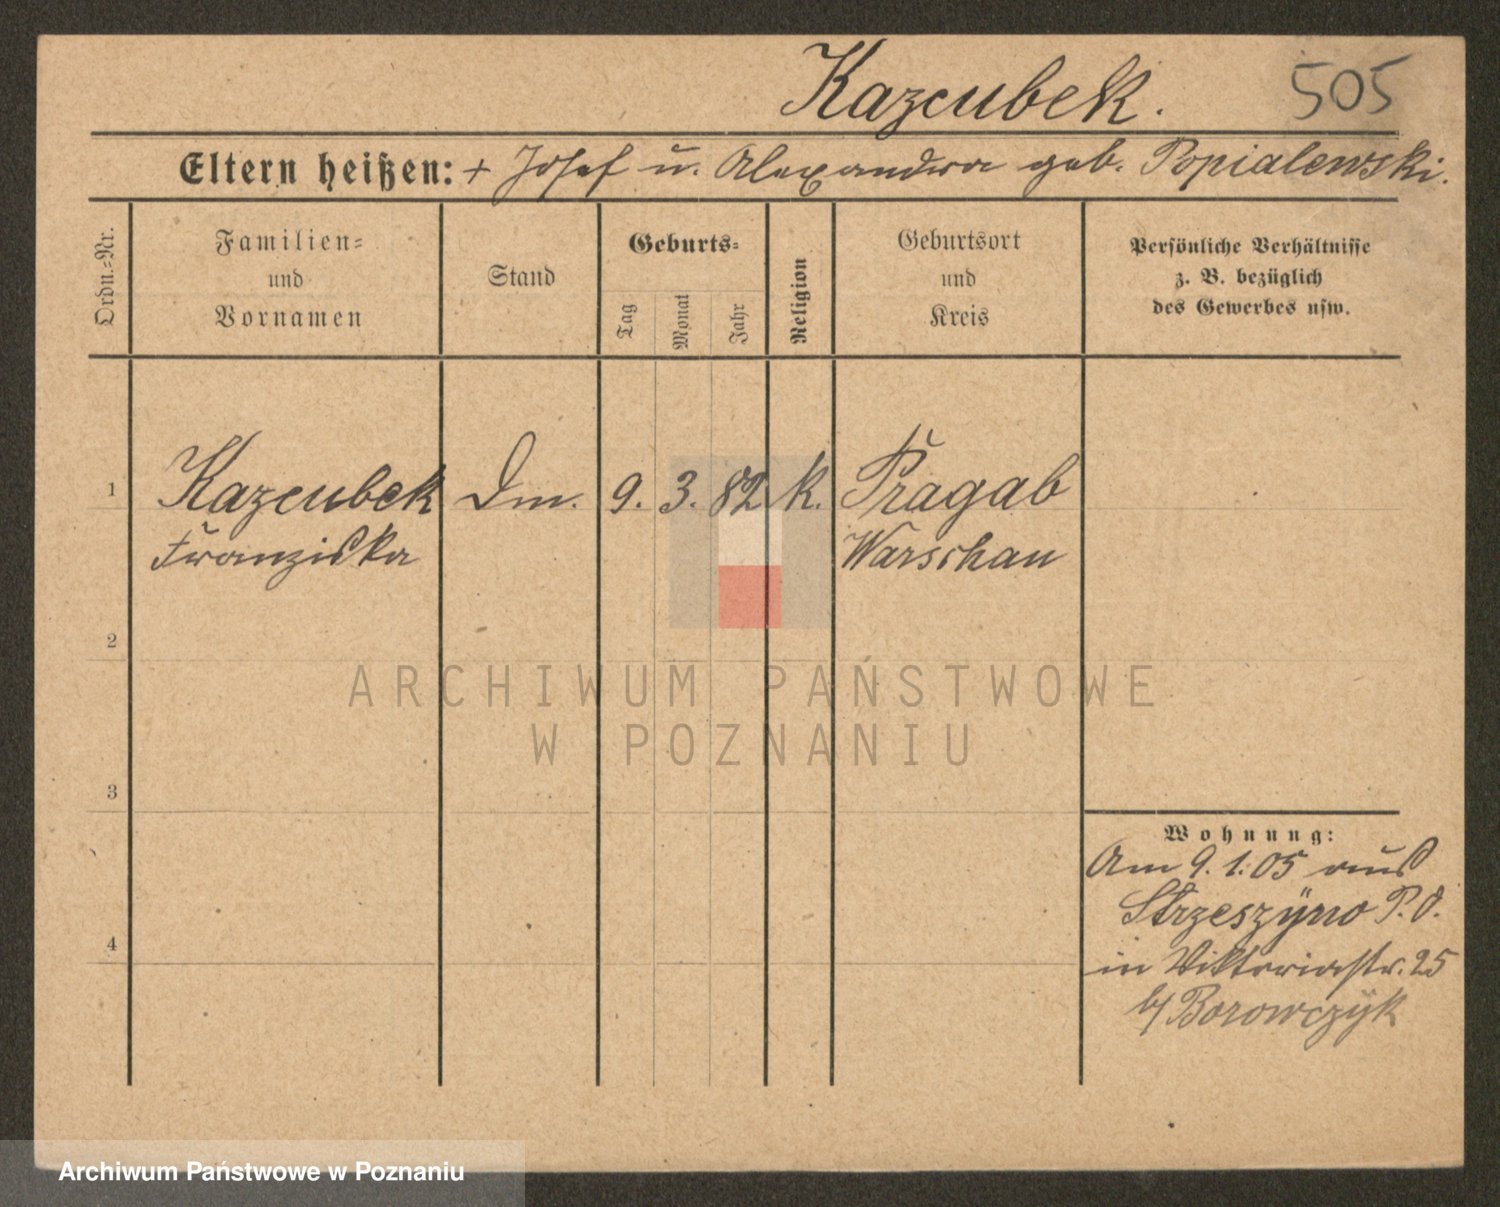 Kazcubek.
505
Eltern heißen: + Josef u. Alexandra geb. Popialewski.
Ordn.-Nr.
Familien-
und
Vornamen
Stand
Geburts-
Tag
Monat
Jahr
Religion
Geburtsort
und
Kreis
Persönliche Verhältnisse
z. B. bezüglich
des Gewerbes usw.
1
Kazcubek Dm. 9. 3. 82 k. Pragab
Franziska Warschau
2
ARCHIWUM PAŃSTWOWE
W POZNANIU
3
Wohnung:
Am 9.1.05 aus
Strzeszÿno P.O.
4
in Viktoriastr. 25
b/ Borowczÿk
Archiwum Państwowe w Poznaniu